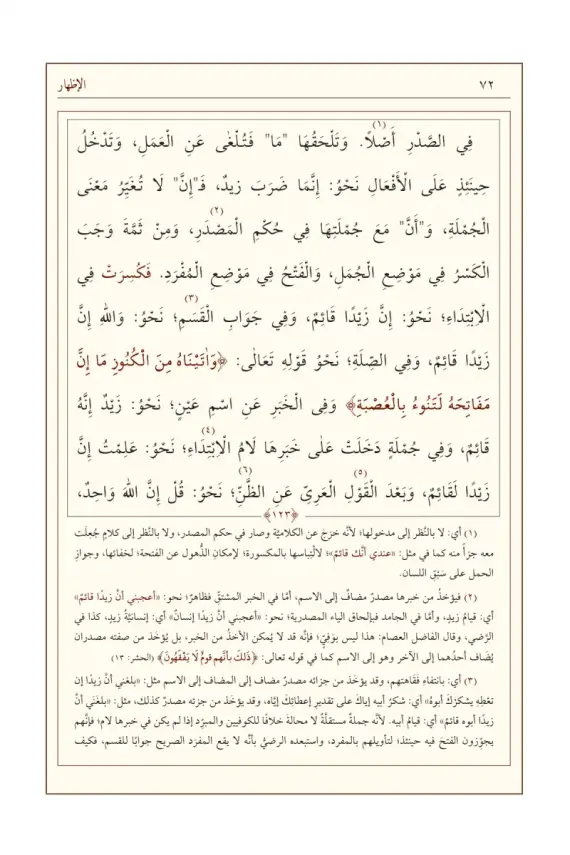 ٧٢ الإظهار
فِي الصَّدْرِ أَصْلاً. (١) وَتَلْحَقُهَا "مَا" فَتُلْغٰى عَنِ الْعَمَلِ، وَتَدْخُلُ
حِينَئِذٍ عَلَى الْأَفْعَالِ نَحْوُ: إِنَّمَا ضَرَبَ زيدٌ، فَـ"إِنَّ" لَا تُغَيِّرُ مَعْنَى
الْجُمْلَةِ، وَ"أَنَّ" مَعَ جُمْلَتِهَا فِي حُكْمِ الْمَصْدَرِ، (٢) وَمِنْ ثَمَّةَ وَجَبَ
الْكَسْرُ فِي مَوْضِعِ الْجُمَلِ، وَالْفَتْحُ فِي مَوْضِعِ الْمُفْرَدِ. فَكُسِرَتْ فِي
الْاِبْتِدَاءِ؛ نَحْوُ: إِنَّ زَيْدًا قَائِمٌ، وَفِي جَوَابِ الْقَسَمِ؛ (٣) نَحْوُ: وَاللهِ إِنَّ
زَيْدًا قَائِمٌ، وَفِي الصِّلَةِ؛ نَحْوُ قَوْلِهِ تَعَالٰى: ﴿وَاٰتَيْنَاهُ مِنَ الْكُنُوزِ مَا إِنَّ
مَفَاتِحَهُ لَتَنُوءُ بِالْعُصْبَةِ﴾ وَفِى الْخَبَرِ عَنِ اسْمِ عَيْنٍ؛ نَحْوُ: زَيْدٌ إِنَّهُ
قَائِمٌ، وَفِي جُمْلَةٍ دَخَلَتْ عَلٰى خَبَرِهَا لَامُ الْاِبْتِدَاءِ؛ (٤) نَحْوُ: عَلِمْتُ إِنَّ
زَيْدًا لَقَائِمٌ، وَبَعْدَ الْقَوْلِ (٥) الْعَرِيِّ عَنِ الظَّنِّ؛ (٦) نَحْوُ: قُلْ إِنَّ اللهَ وَاحِدٌ،
﴿١٢٣﴾
(١) أي: لا بالنَّظر إلى مدخولها؛ لأنَّه خرَجَ عن الكلاميَّة وصار في حكم المصدر، ولا بالنَّظر إلى كلامٍ جُعِلَت
معه جزأً منه كما في مثل: «عندي أنَّك قائمٌ»؛ لالْتِباسها بالمكسورة؛ لإمكانِ الذُّهول عن الفتحة؛ لخفائها، وجوازِ
الحمل على سَبْقِ اللسان.
(٢) فيؤخذُ من خبرها مصدرٌ مضافٌ إلى الاسم، أمَّا في الخبر المشتقّ فظاهرٌ؛ نحو: «أعجبني أنَّ زيدًا قائمٌ»
أي: قيامُ زيدٍ، وأمَّا في الجامد فبإلحاق الياء المصدرية؛ نحو: «أعجبني أنَّ زيدًا إنسانٌ» أي: إنسانيَّةُ زيدٍ، كذا في
الرَّضي، وقال الفاضل العصام: هذا ليس بوَفِيٍّ؛ فإنَّه قد لا يُمكن الأخذُ من الخبر، بل يُؤخَذ من صفته مصدران
يُضاف أحدُهما إلى الآخر وهو إلى الاسم كما في قوله تعالى: ﴿ذَلكَ بأنَّهم قومٌ لَا يَفْقَهُونَ﴾ (الحشر: ١٣)
(٣) أي: بانتفاءِ فَقَاهتهم، وقد يؤخذ من جزائه مصدرٌ مضاف إلى المضاف إلى الاسم مثل: «بلغني أنَّ زيدًا إن
تعْطِه يشكرْكَ أبوهُ» أي: شكرُ أبيه إياكَ على تقديرِ إعطائِكَ إيَّاه، وقد يؤخَذ من جزئه مصدرٌ كذلك، مثل: «بلغَني أنَّ
زيدًا أبوه قائمٌ» أي: قيامُ أبيه. لأنَّه جملةٌ مستقلَّةٌ لا محالةَ خلافًا للكوفيين والمبرِّد إذا لم يكن في خبرها لام؛ فإنَّهم
يجوِّزون الفتحَ فيه حينئذٍ؛ لتأويلهم بالمفرد، واستبعده الرضيُّ بأنَّه لا يقع المفرَد الصريح جوابًا للقسم، فكيف